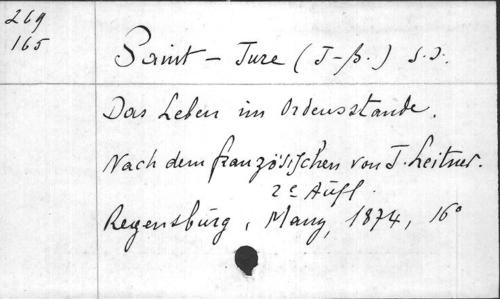 269
165
Saint-Jure (J-B.) S.J.
Das Leben im Ordensstande.
Nach dem französischen von J. Leitner.
2e Aufl.
Regensburg, Manz, 1874, 16°